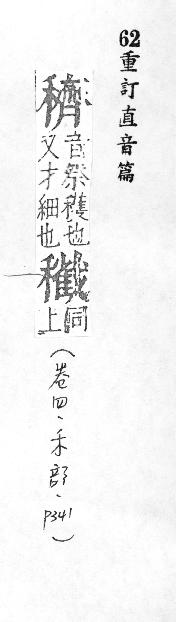 62重訂直音篇
穧
音祭穫也
又才細也
同
上
(卷四、禾部、p341)